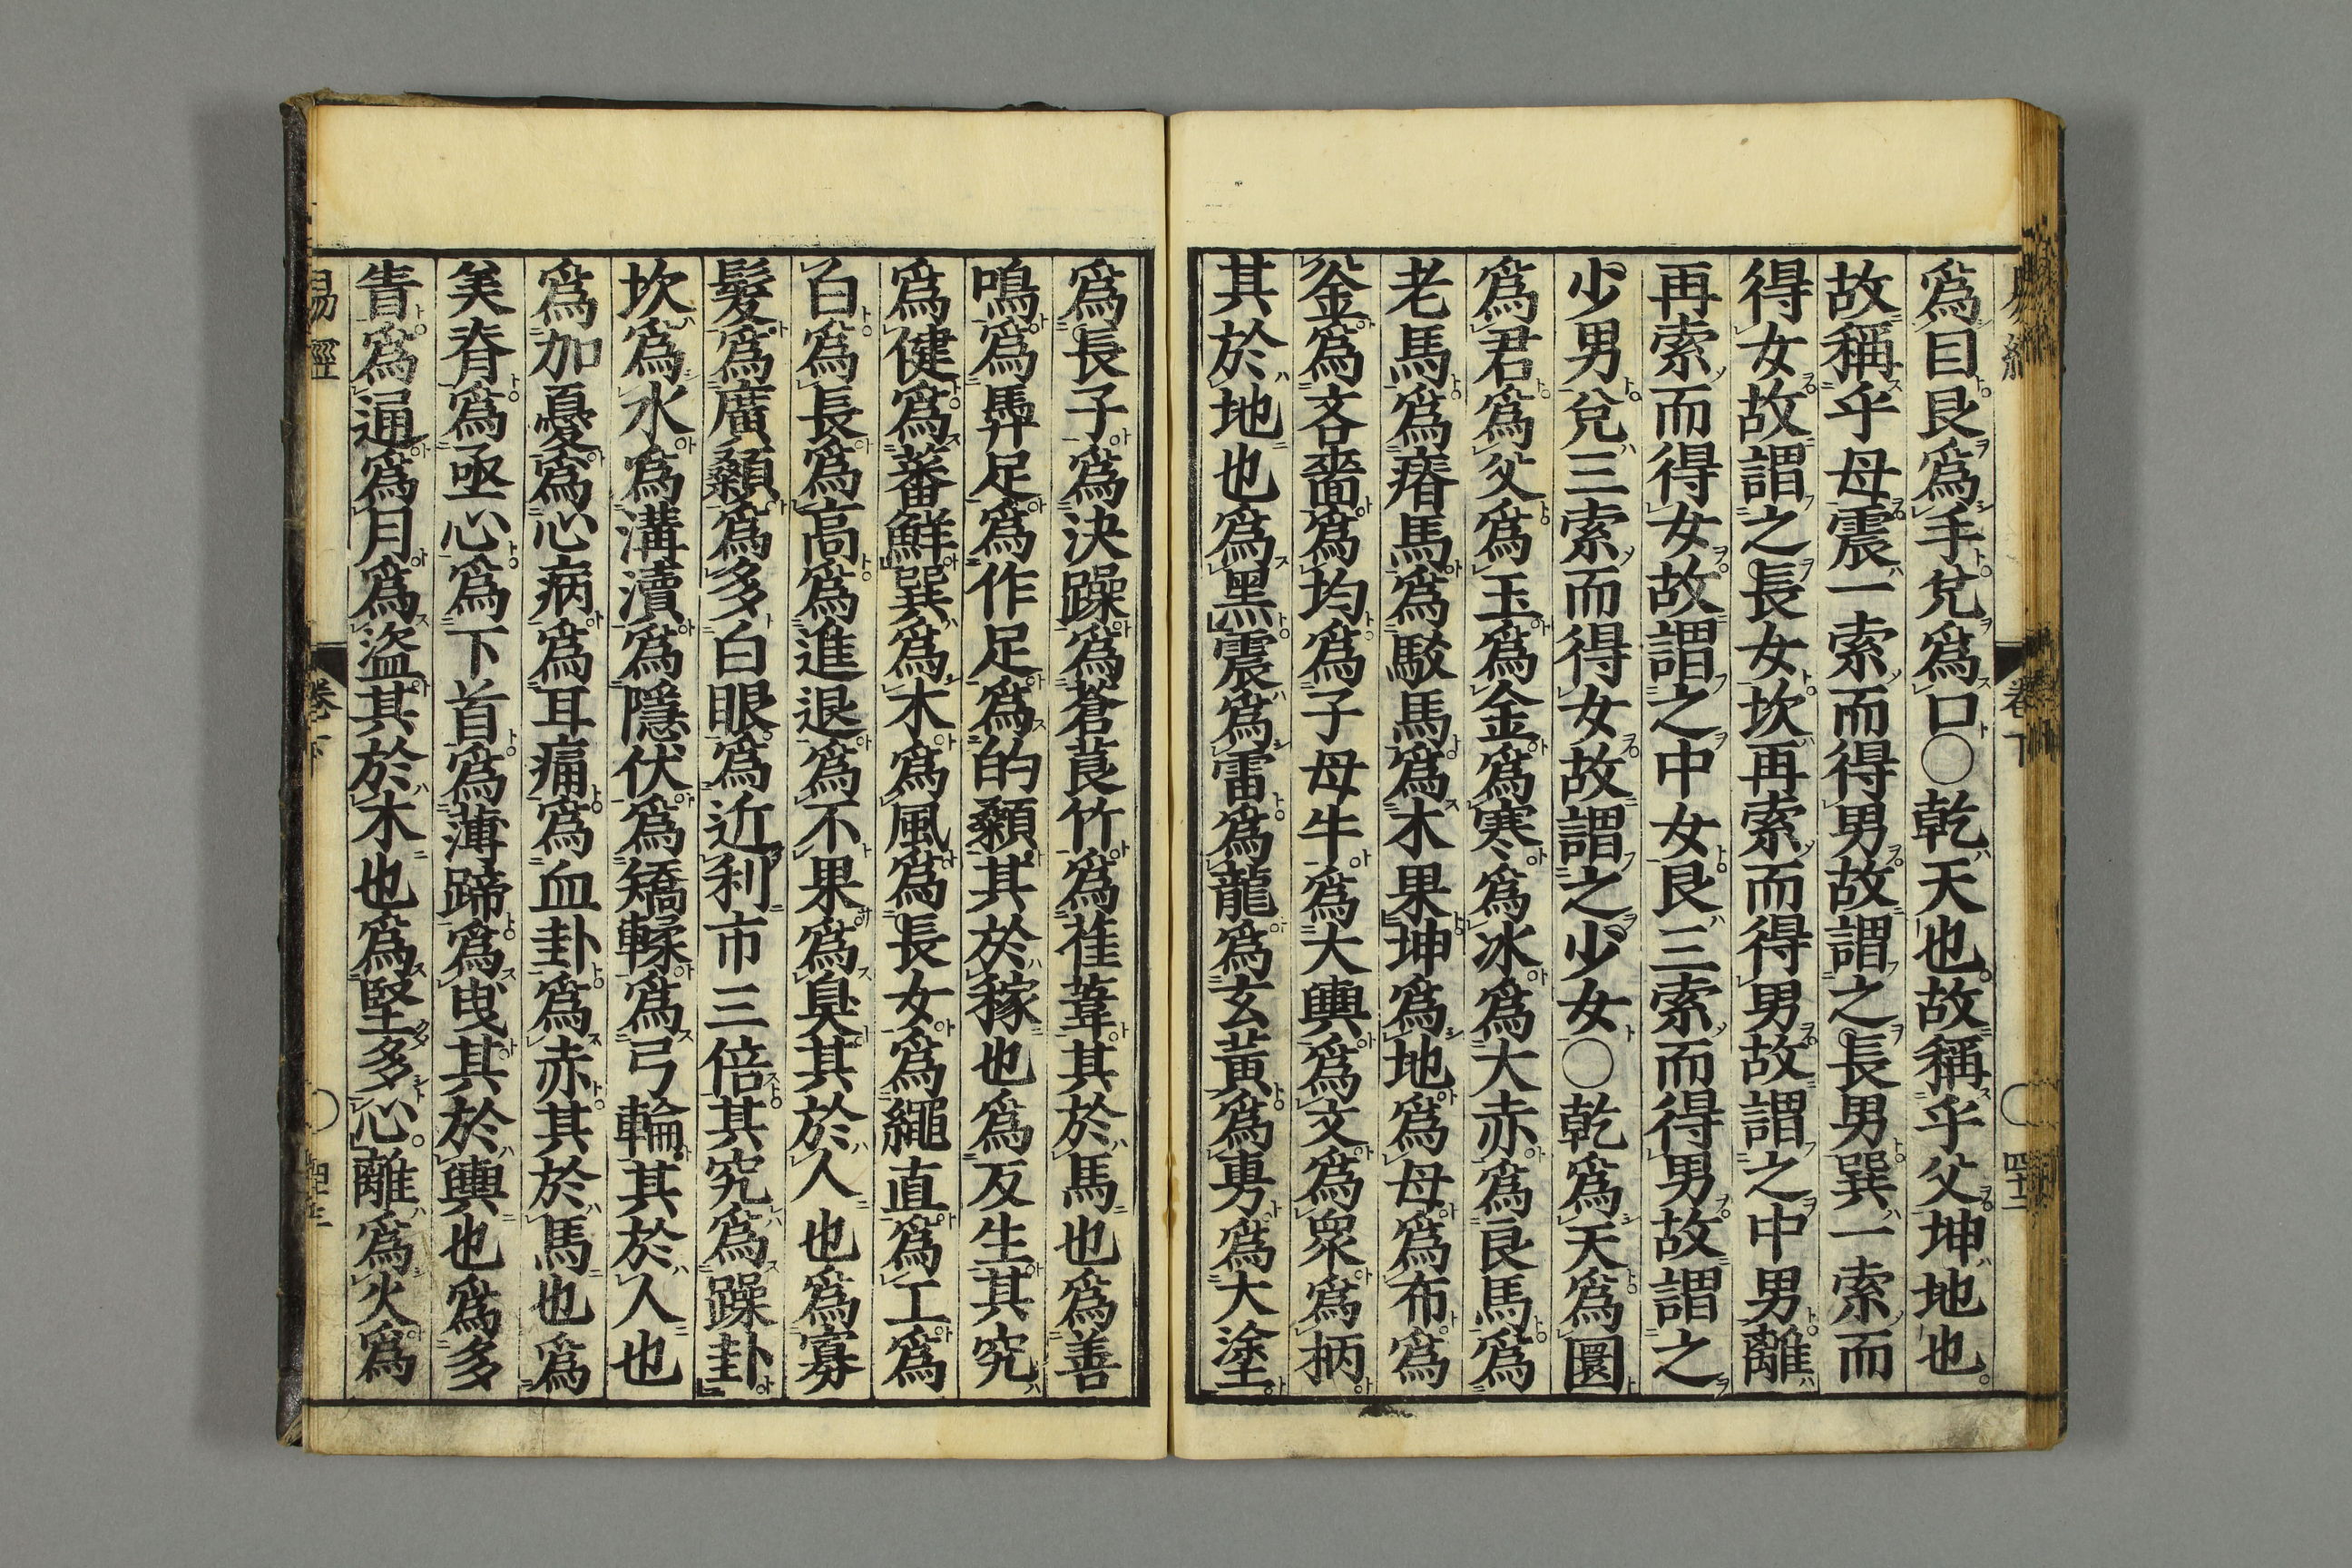 爲目艮爲手兌爲口〇乾天也故稱乎父坤地也
故稱乎母震一索而得男故謂之長男巽一索而
得女故謂之長女坎再索而得男故謂之中男離
再索而得女故謂之中女艮三索而得男故謂之
少男兌三索而得女故謂之少女〇乾爲天爲圜
爲君爲父爲玉爲金爲寒爲冰爲大赤爲良馬爲
老馬爲瘠馬爲駁馬爲木果坤爲地爲母爲布爲
釜爲吝嗇爲均爲子母牛爲大輿爲文爲衆爲柄
其於地也爲黑震爲雷爲龍爲玄黃爲旉爲大塗
爲長子爲決躁爲蒼莨竹爲萑葦其於馬也爲善
鳴爲馵足爲作足爲的顙其於稼也爲反生其究
爲健爲蕃鮮巽爲木爲風爲長女爲繩直爲工爲
白爲長爲高爲進退爲不果爲臭其於人也爲寡
髮爲廣顙爲多白眼爲近利市三倍其究爲躁卦
坎爲水爲溝瀆爲隱伏爲矯輮爲弓輪其於人也
爲加憂爲心病爲耳痛爲血卦爲赤其於馬也爲
美脊爲亟心爲下首爲薄蹄爲曳其於輿也爲多
眚爲通爲月爲盜其於木也爲堅多心離爲火爲
易經 卷下 〇